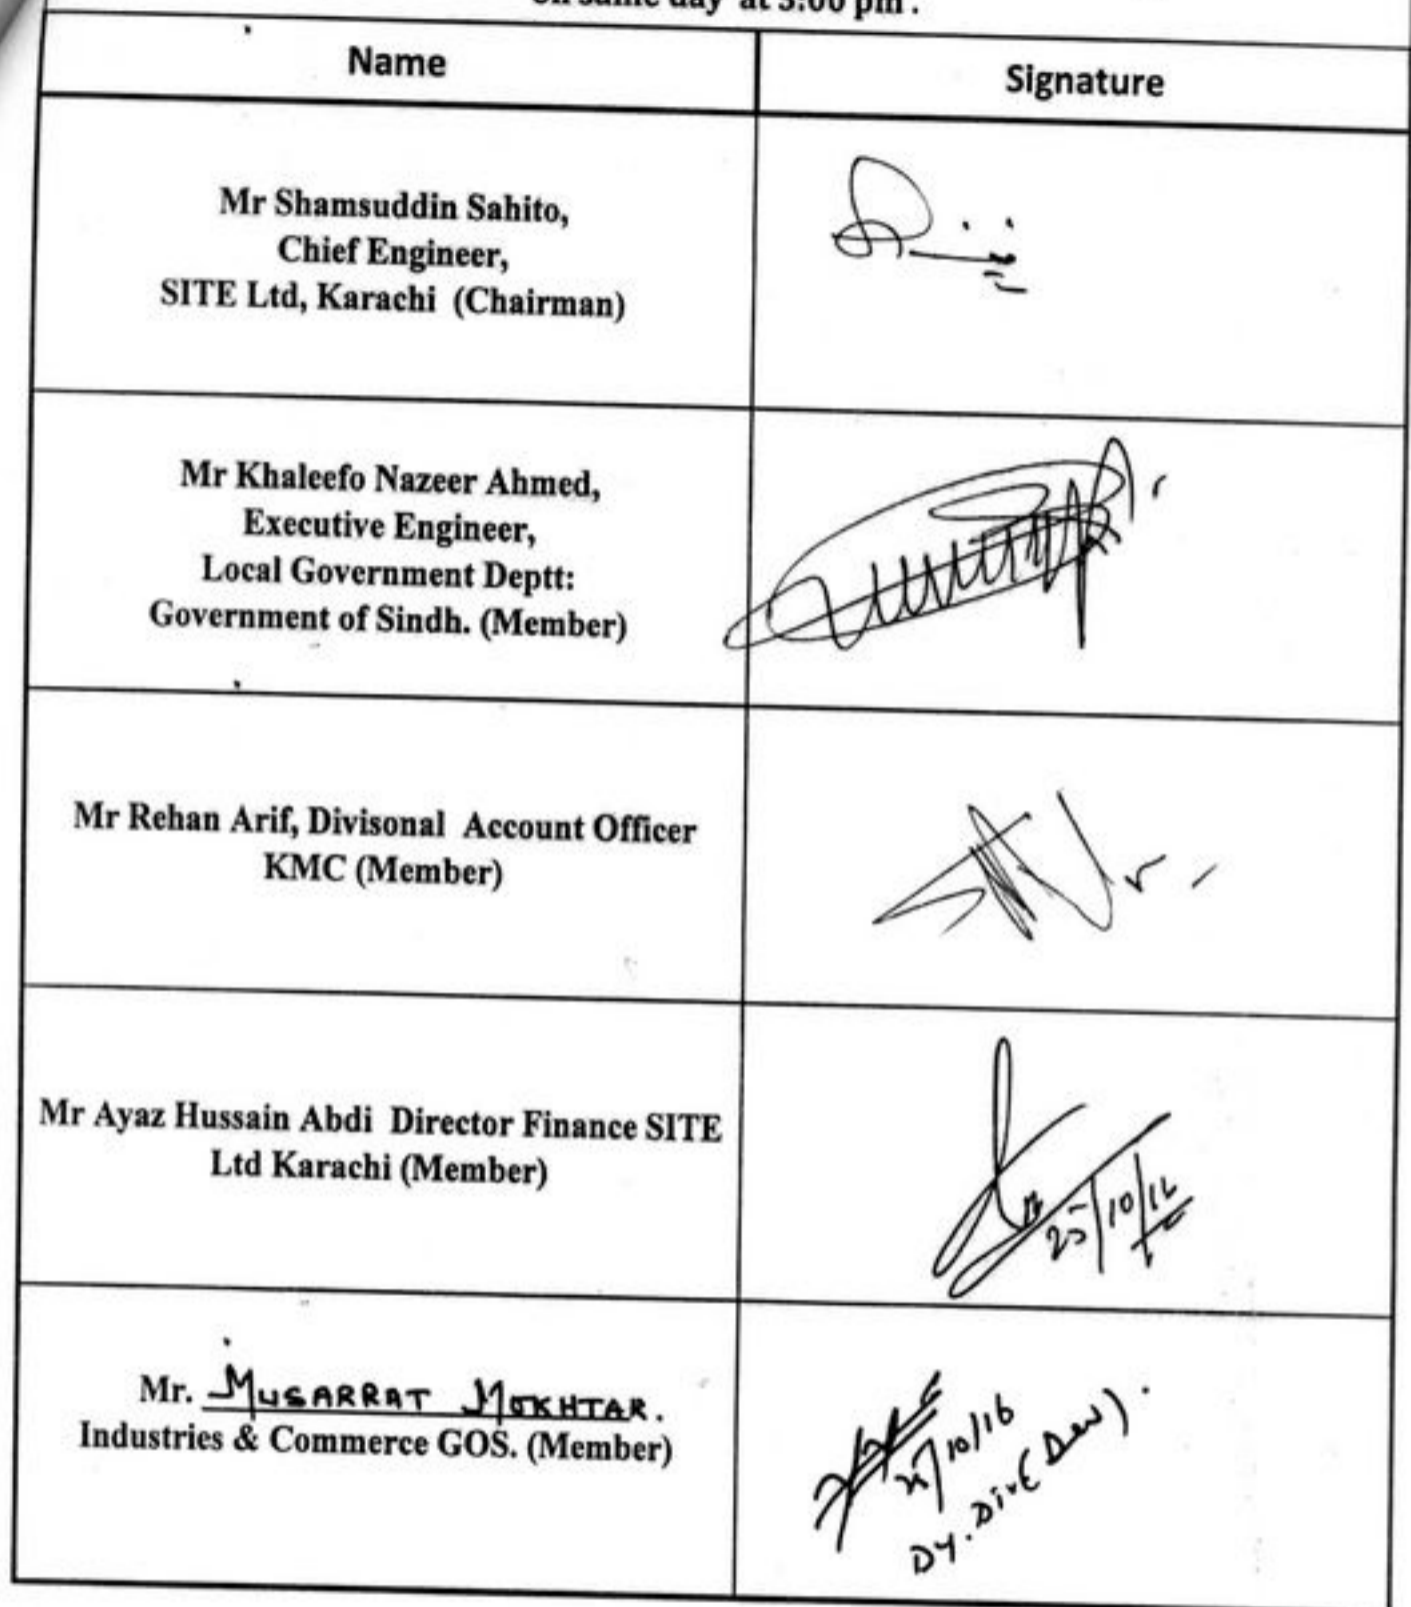 on same day at 3:00 pm .
Name
Signature
Mr Shamsuddin Sahito,
Chief Engineer,
SITE Ltd, Karachi (Chairman)
Mr Khaleefo Nazeer Ahmed,
Executive Engineer,
Local Government Deptt:
Government of Sindh. (Member)
Mr Rehan Arif, Divisonal Account Officer
KMC (Member)
Mr Ayaz Hussain Abdi Director Finance SITE
Ltd Karachi (Member)
25/10/16
Mr. MUSARRAT MOKHTAR.
Industries & Commerce GOS. (Member)
/10/16
Dy. Dir (Dev).